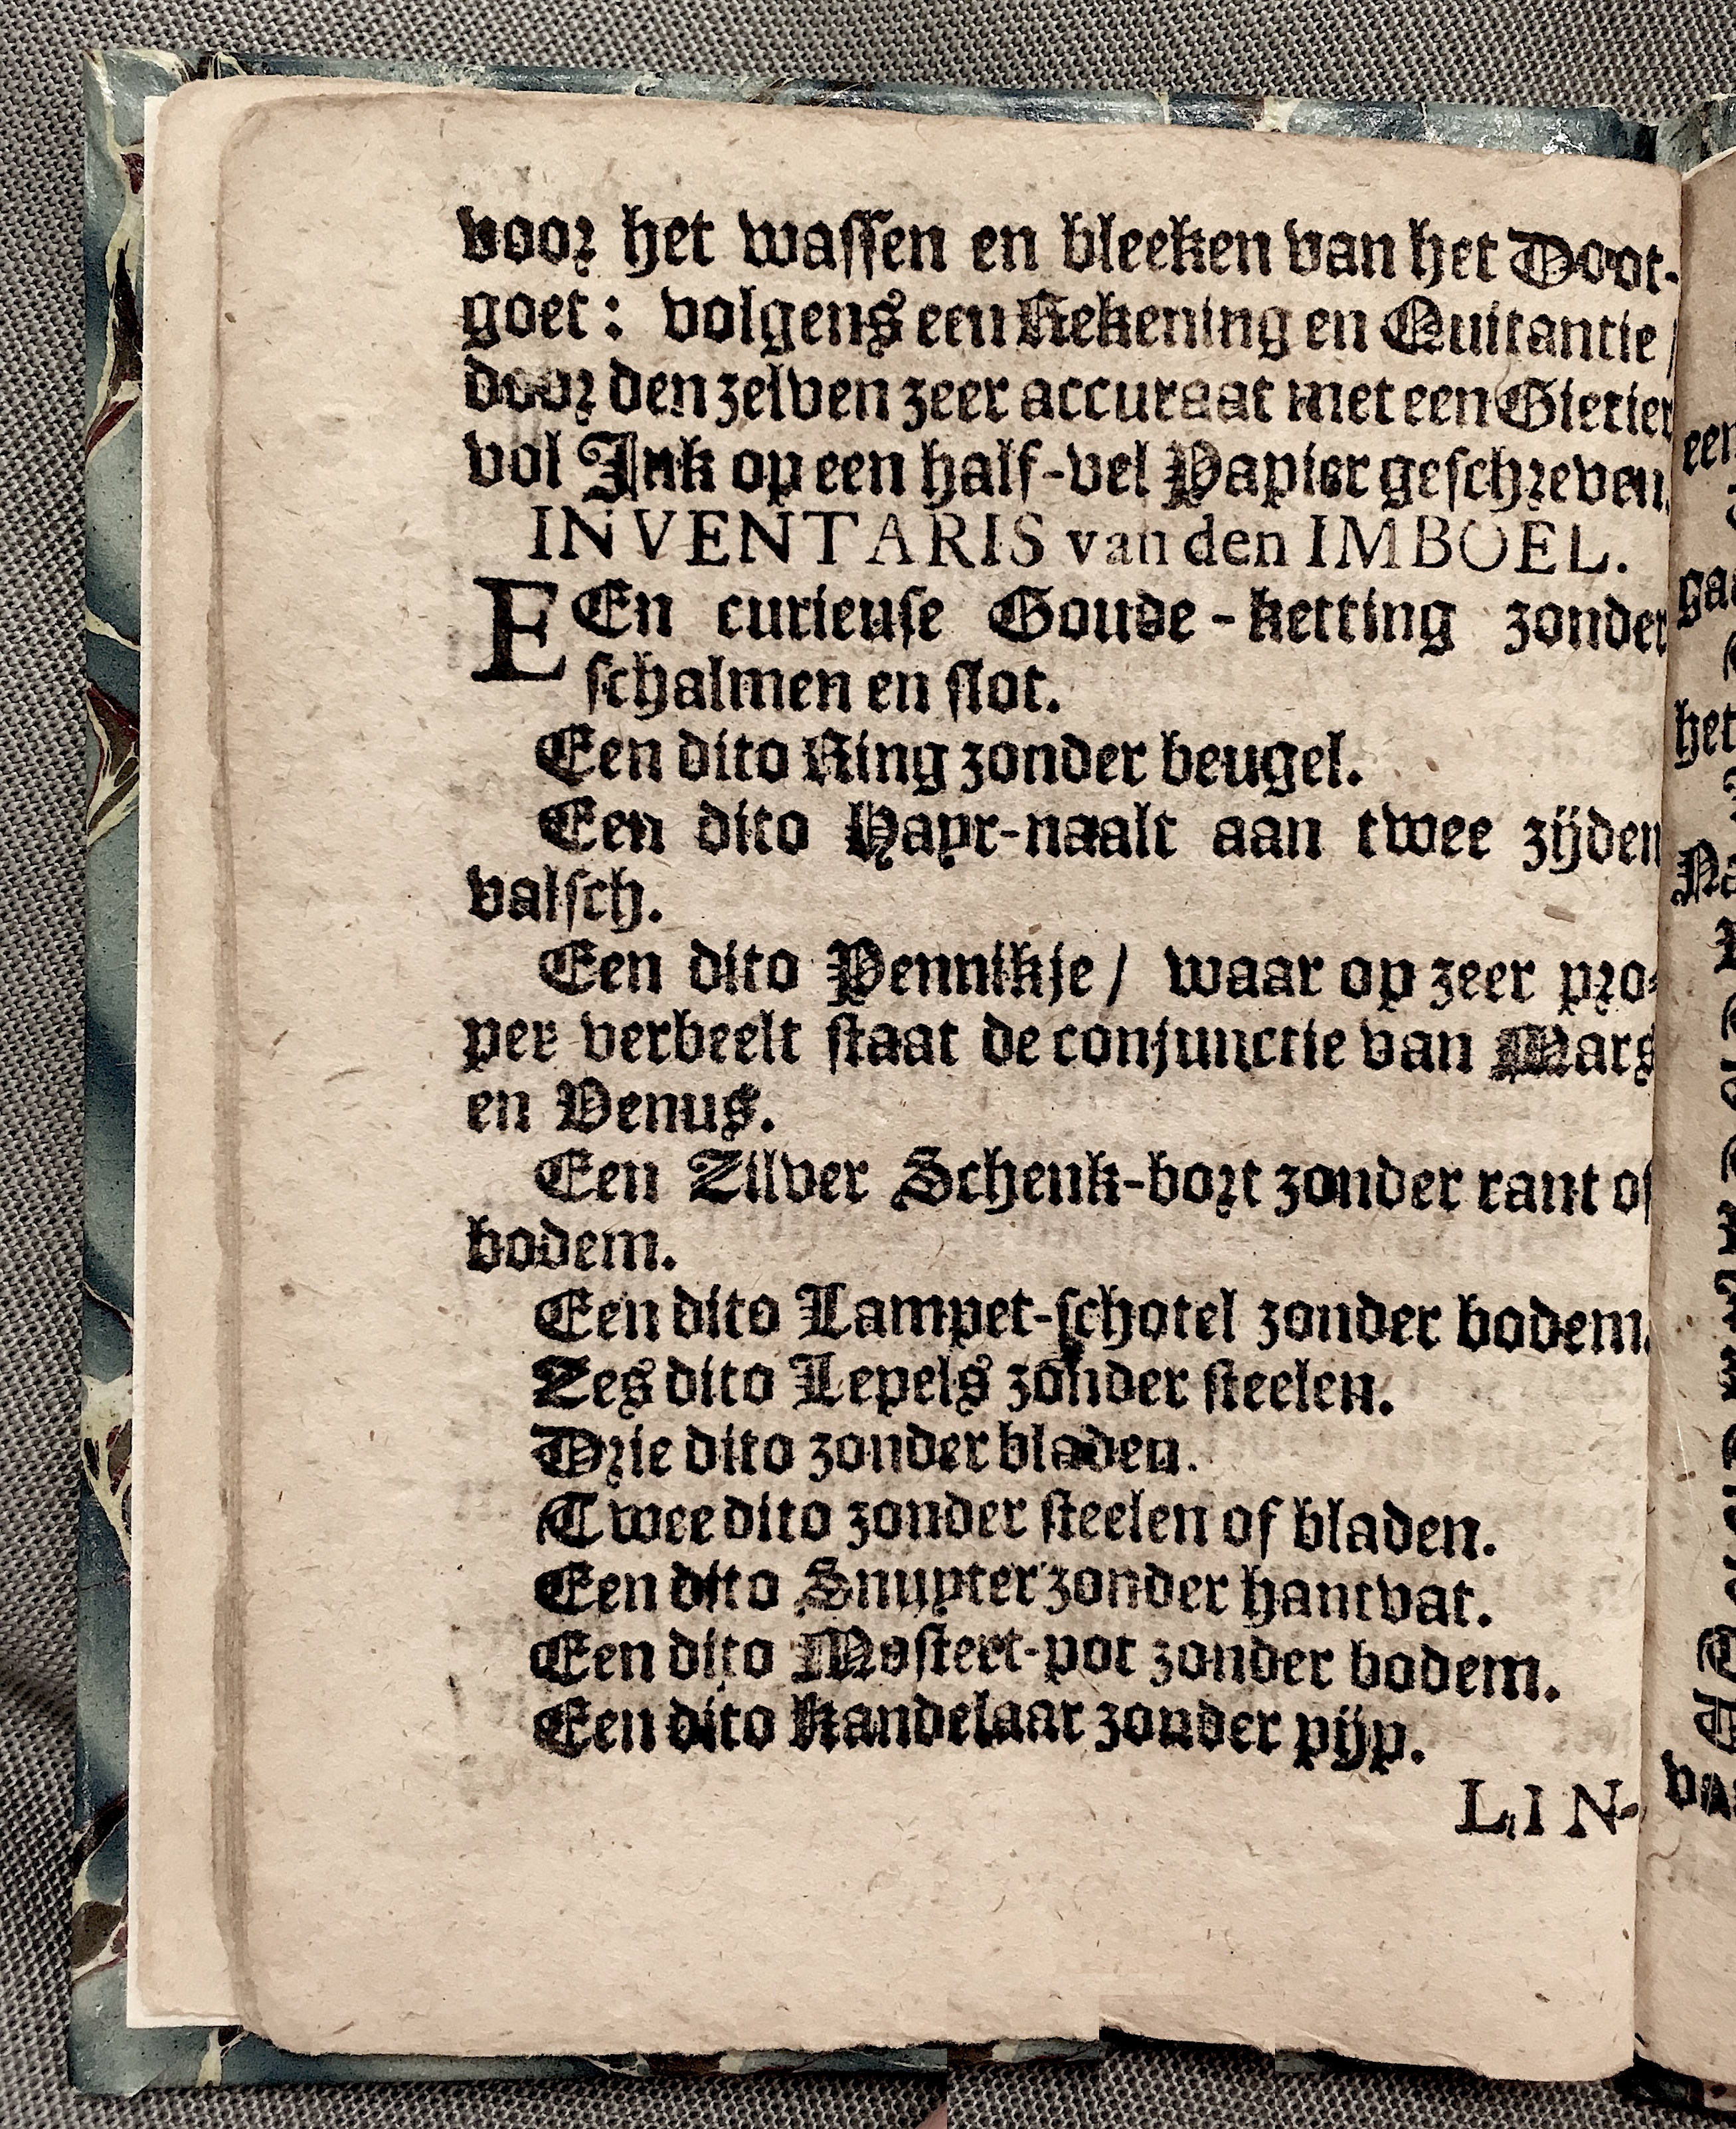 voor het wassen en bleeken van het Doot-
goet: volgens een Rekening en Quitantie /
door den zelven zeer accuraat met een Gietier
vol Ink op een half-vel Papier geschreven.
INVENTARIS van den IMBOEL.
EEn curieuse Goude-ketting zonder
schalmen en slot.
Een dito Ring zonder beugel.
Een dito Hayr-naalt aan twee zijden
valsch.
Een dito Pennikje / waar op zeer pro-
per verbeelt staat de conjunctie van Mars
en Venus.
Een Zilver Schenk-bort zonder rant of
bodem.
Een dito Lampet-schotel zonder bodem.
Zes dito Lepels zonder steelen.
Drie dito zonder bladen.
Twee dito zonder steelen of bladen.
Een dito Snuyter zonder hantvat.
Een dito Mostert-pot zonder bodem.
Een dito Kandelaar zonder pijp.
LIN-